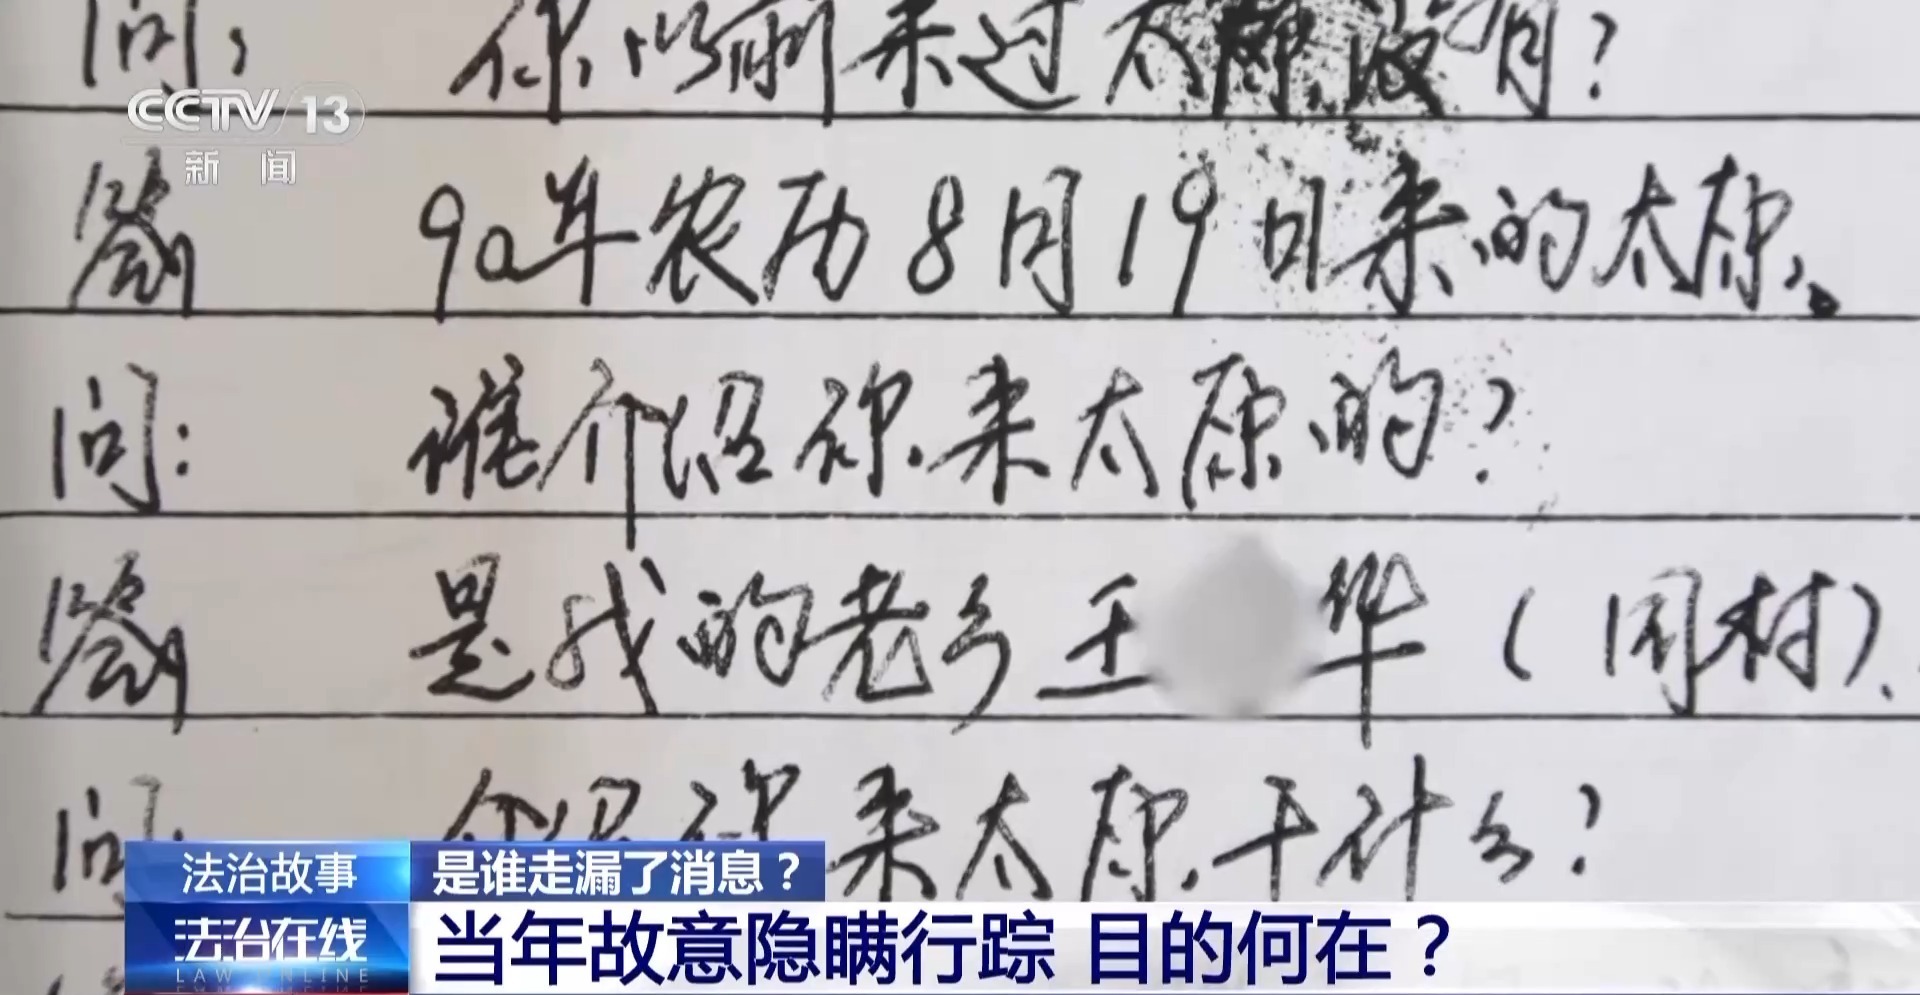 问: 你以前来过太原没有?
CCTV 13
新闻
答 90年农历8月19日来的太原。
问: 谁介绍你来太原的?
答 是我的老乡王 华(同村)、
问: 介绍你来太原干什么?
法治故事 是谁走漏了消息?
法治在线 当年故意隐瞒行踪 目的何在?
LAW ONLINE